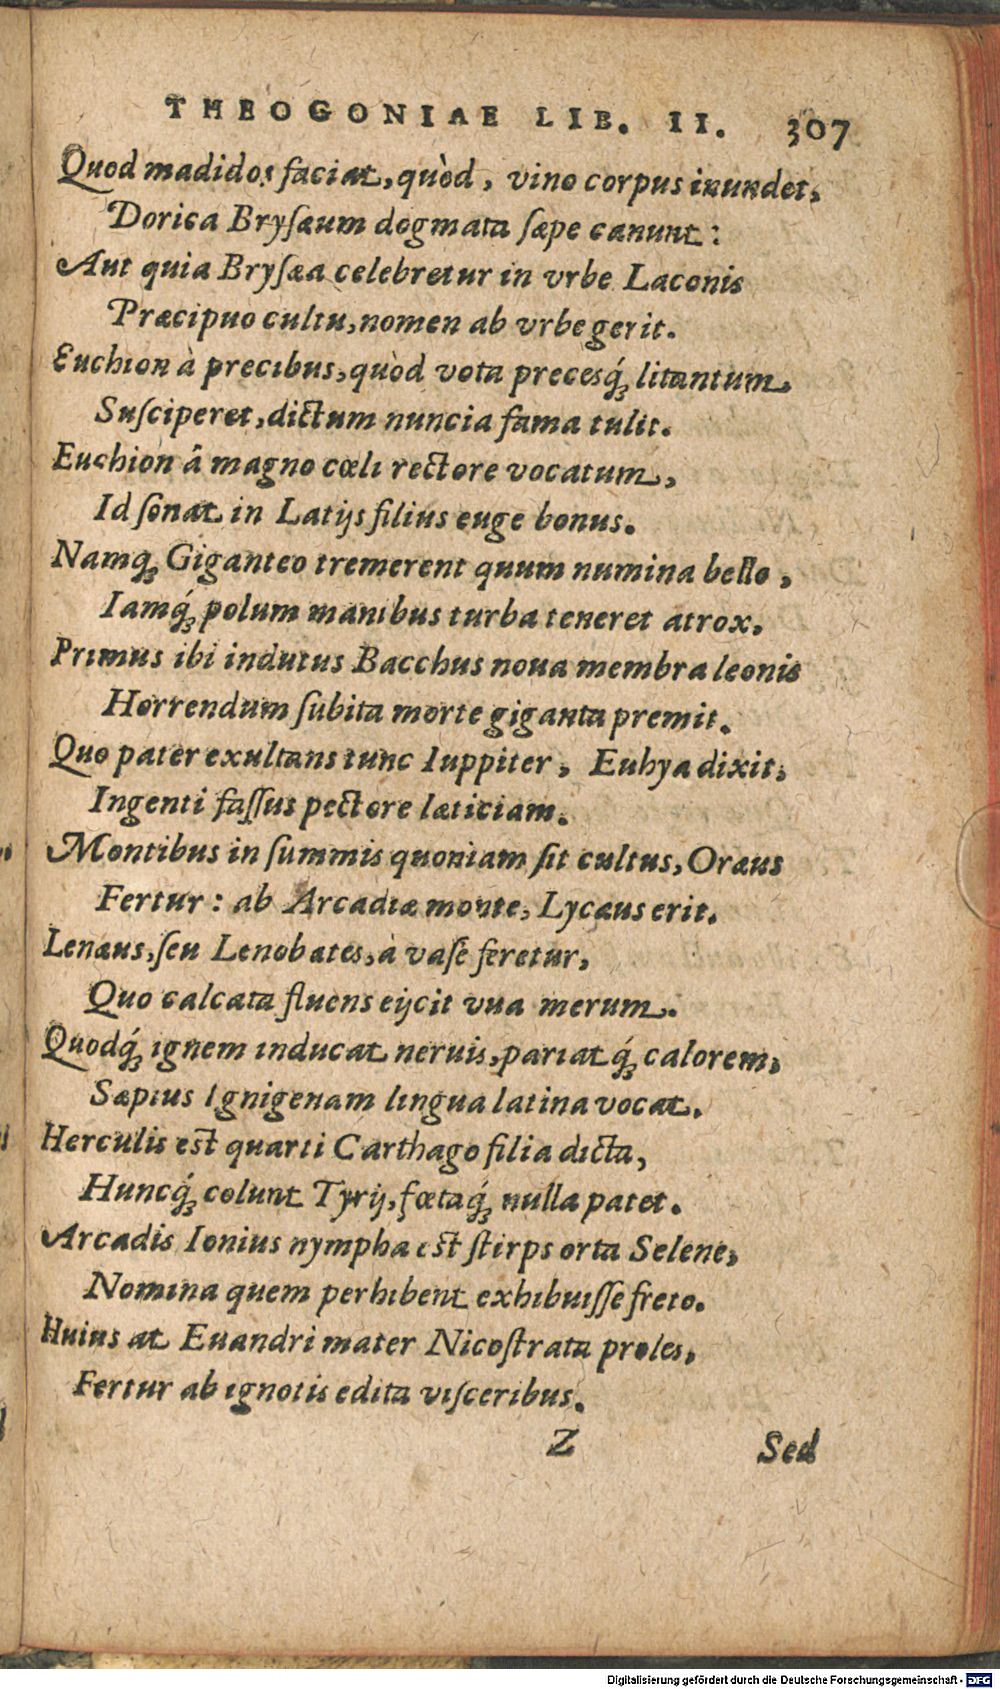 THEOGONIAE LIB. II. 307
Quod madidos faciat, quòd, vino corpus inundet,
Dorica Brysæum dogmata sæpe canunt:
Aut quia Brysæa celebretur in vrbe Laconis
Præcipuo cultu, nomen ab vrbe gerit.
Euchion à precibus, quòd vota precesq́; litantum,
Susciperet, dictum nuncia fama tulit.
Euchion â magno cœli rectore vocatum,
Id sonat in Latijs filius euge bonus.
Namq; Giganteo tremerent quum numina bello,
Iamq́; polum manibus turba teneret atrox.
Primus ibi indutus Bacchus noua membra leonis
Horrendum subita morte giganta premit.
Quo pater exultans tunc Iuppiter, Euhya dixit,
Ingenti fassus pectore læticiam.
Montibus in summis quoniam sit cultus, Oræus
Fertur: ab Arcadiæ monte, Lycæus erit.
Lenæus, seu Lenobates, à vase feretur,
Quo calcata fluens eijcit vua merum.
Quodq́; ignem inducat neruis, pariatq́; calorem,
Sæpius Ignigenam lingua latina vocat.
Herculis est quarti Carthago filia dicta,
Huncq́; colunt Tyrij, fœtaq́; nulla patet.
Arcadis Ionius nympha est stirps orta Selene,
Nomina quem perhibent exhibuisse freto.
Huius at Euandri mater Nicostrata proles,
Fertur ab ignotis edita visceribus.
Z Sed
Digitalisierung gefördert durch die Deutsche Forschungsgemeinschaft - DFG